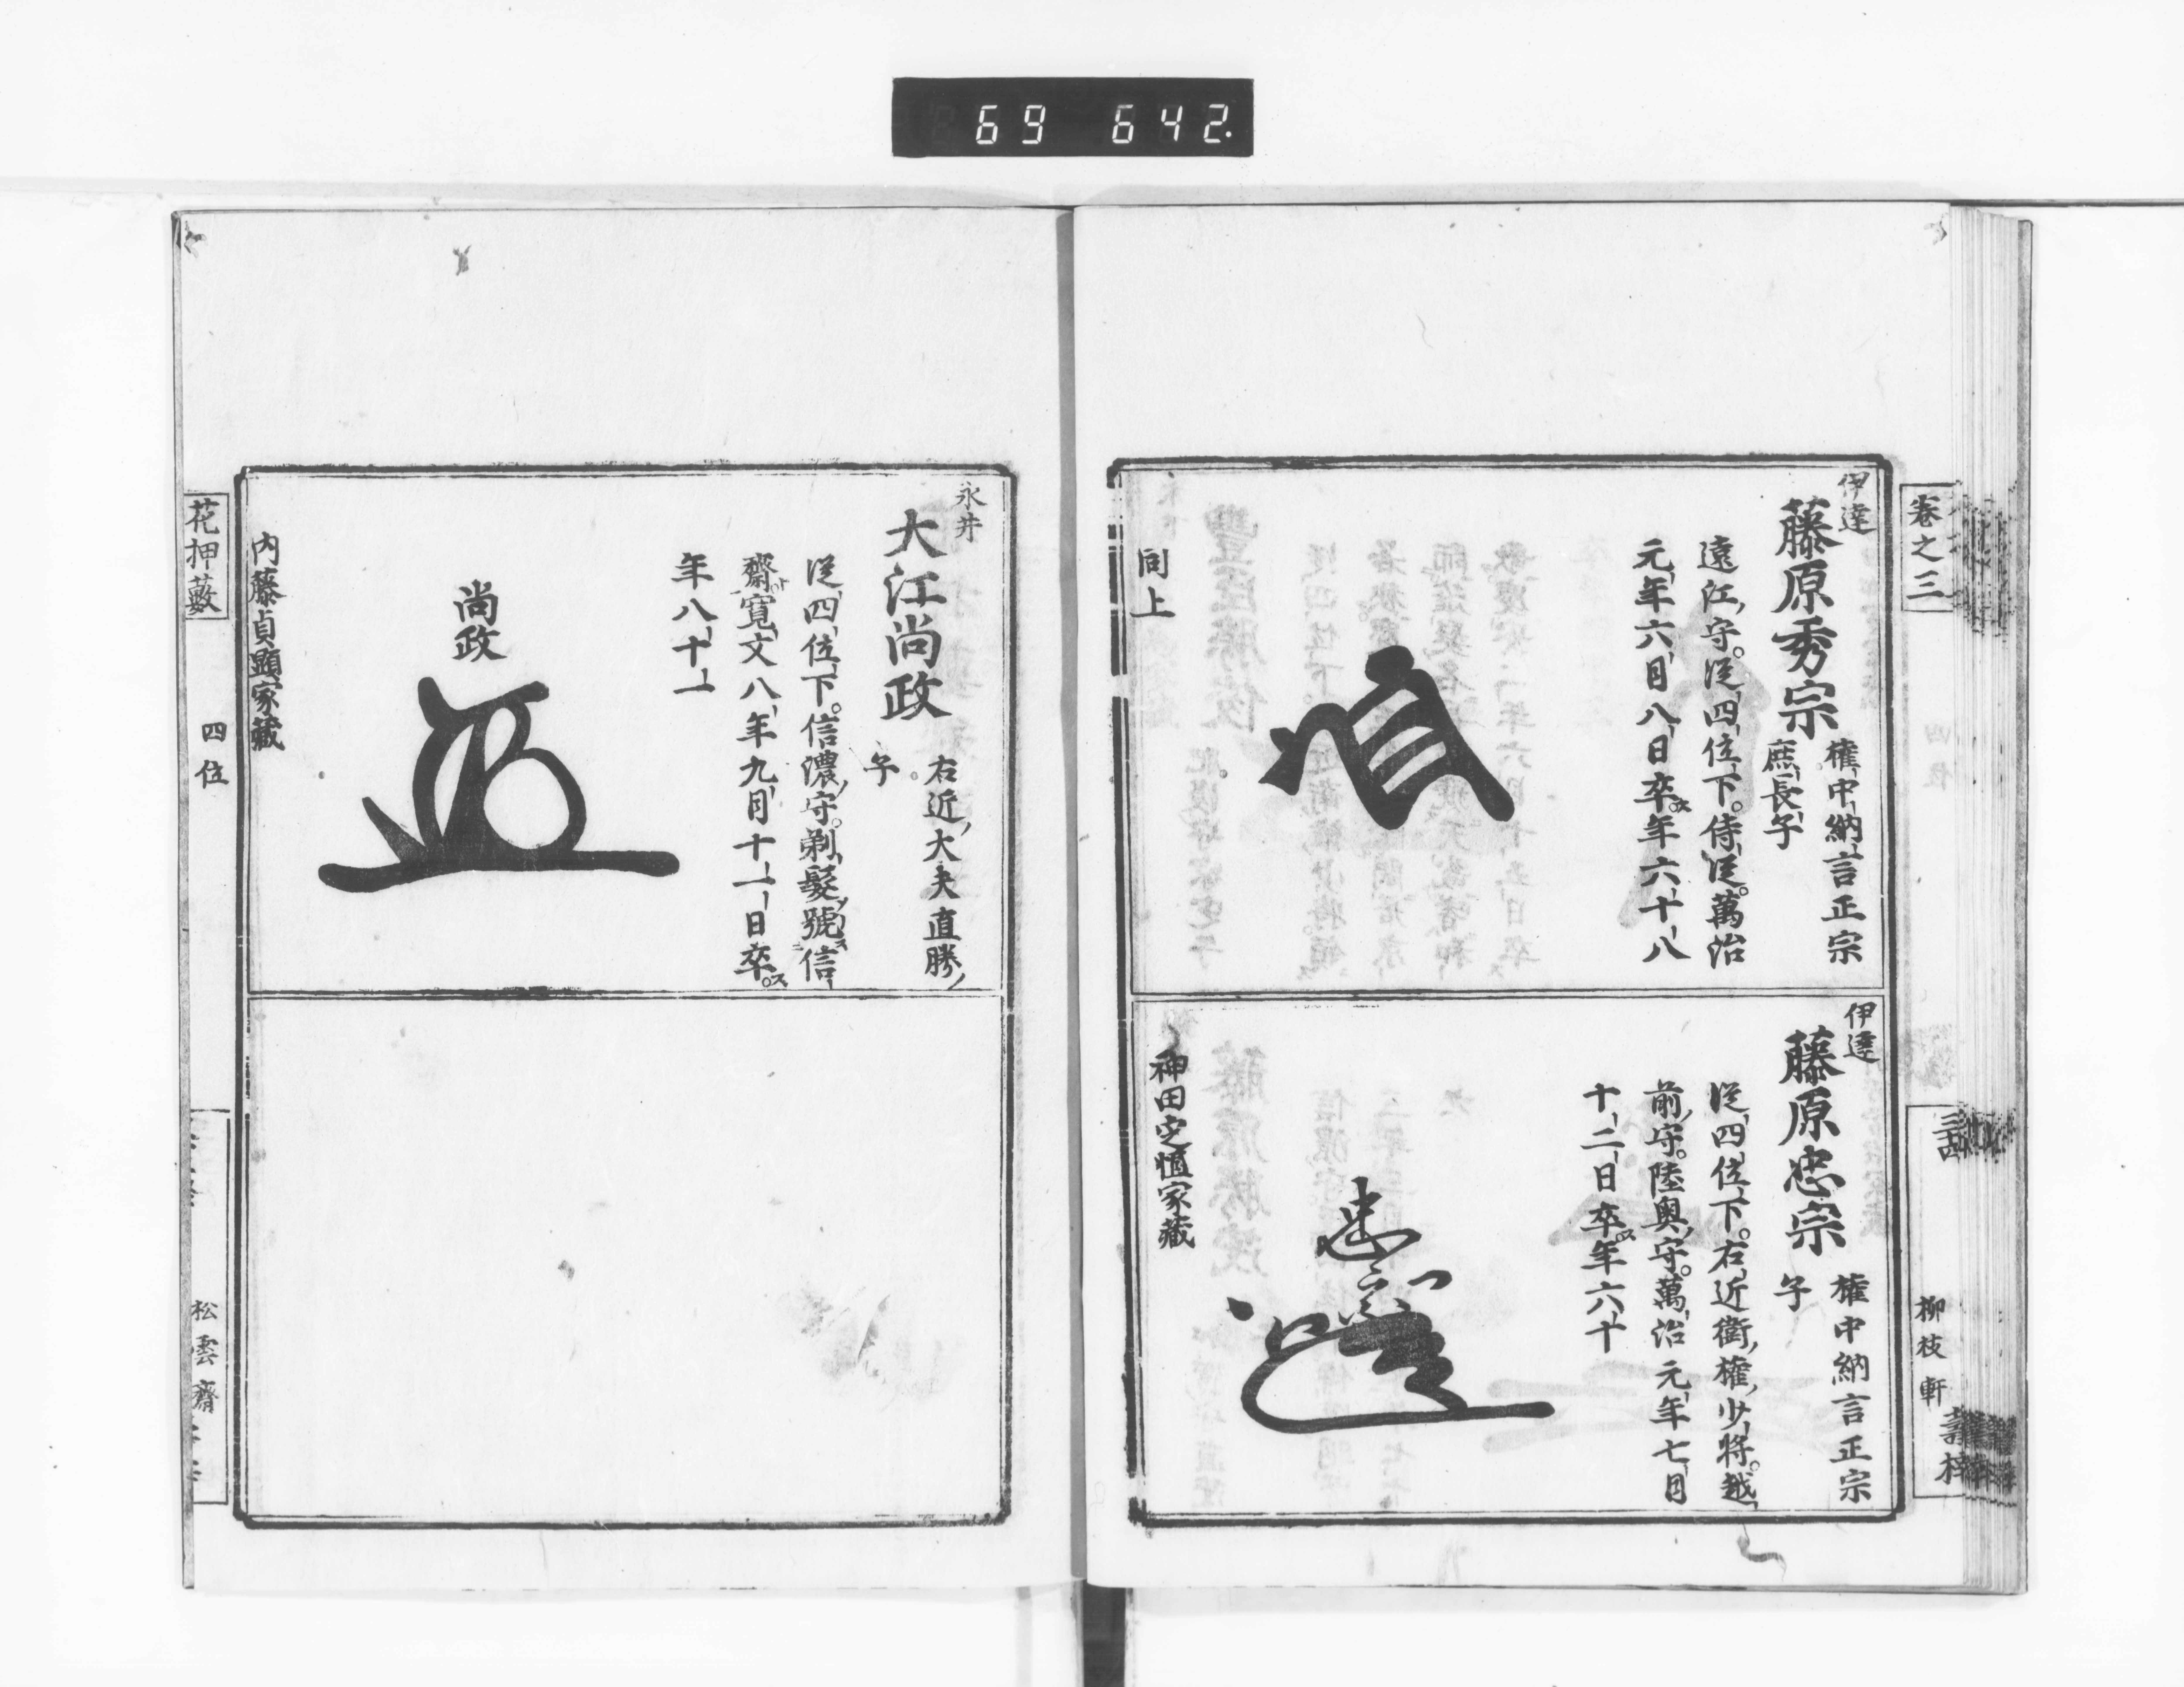 69 642.
巻之三
伊達
藤原秀宗
權中納言正宗
庶長子
遠江守。從四位下。侍從。萬治
元年六月八日卒ス。年六十八
同上
伊達
藤原忠宗
權中納言正宗
子
從四位下。右近衛權少將。越
前守。陸奥守。萬治元年七月
十二日卒ス。年六十
忠宗
神田定恒家藏
柳枝軒
永井
大江尚政
右近大夫直勝
子。
從四位下。信濃守。剃髮號信
齋。寛文八年九月十一日卒ス。
年八十一
尚政
内藤貞顯家藏
花押藪
四位
松雲齋